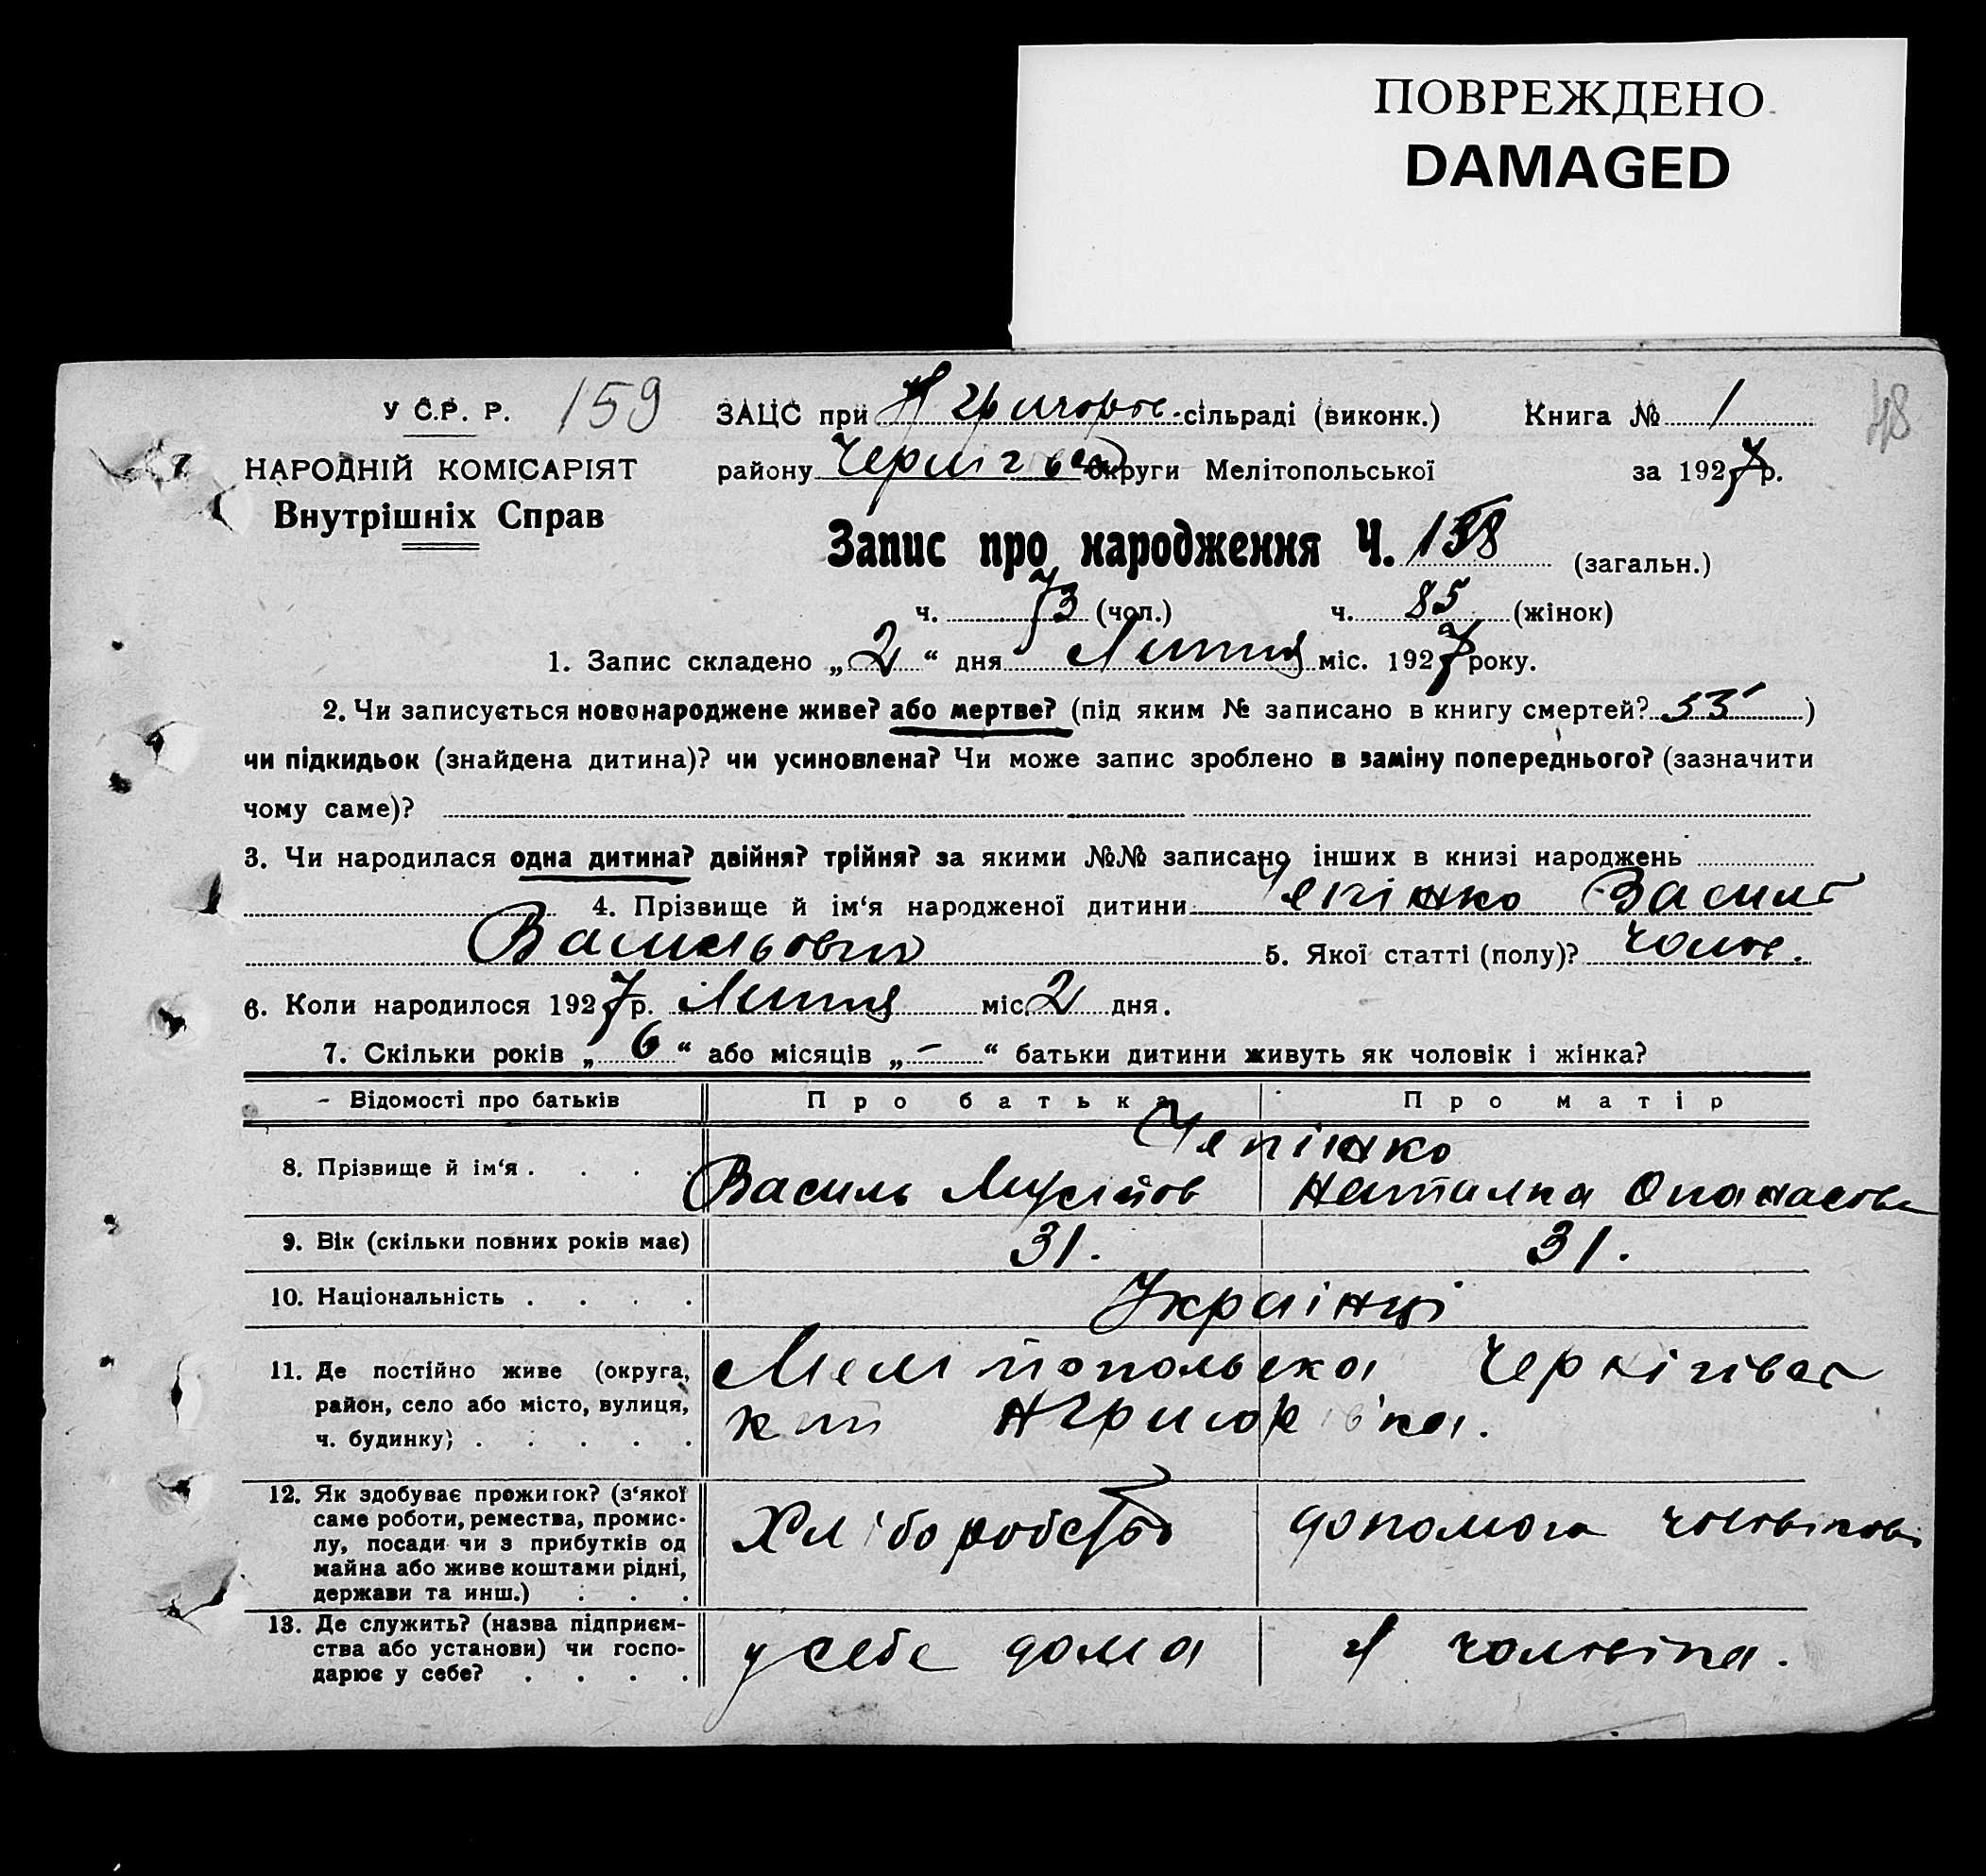 ПОВРЕЖДЕНО
DAMAGED
У С.Р. Р. 159 ЗАЦС при Н Григоров. сільраді (виконк.) Книга № 1 48
НАРОДНІЙ КОМІСАРІЯТ району Чернігов округи Мелітопольської за 1927 р.
Внутрішніх Справ
Запис про народження Ч. 158 (загальн.)
ч. 73 (чол.) ч. 85 (жінок)
1. Запис складено „ 2 “ дня Липня міс. 1927 року.
2. Чи записується новонароджене живе? або мертве? (під яким № записано в книгу смертей? 53 )
чи підкидьок (знайдена дитина)? чи усиновлена? Чи може запис зроблено в заміну попереднього? (зазначити
чому саме)?
3. Чи народилася одна дитина? двійня? трійня? за якими №№ записано інших в книзі народжень
4. Прізвище й ім‘я народженої дитини Василь
Васильович 5. Якої статті (полу)? чолов.
6. Коли народилося 1927 р. Липня міс. 2 дня.
7. Скільки років „ 6 “ або місяців „ – “ батьки дитини живуть як чоловік і жінка?
Відомості про батьків Про батька Про матір
8. Прізвище й ім‘я . . . .
Василь Мусійов Наталка Опанасова
9. Вік (скільки повних років має) 31. 31.
10. Національність . . . . Українці
11. Де постійно живе (округа, Мелітопольска Чернігівс
район, село або місто, вулиця, кий НГригорівка.
ч. будинку) . . . . .
12. Як здобуває прожиток? (з‘якої
саме роботи, ремества, промис-
лу, посади чи з прибутків од Хліборобство допомога чоловікові
майна або живе коштами рідні,
держави та инш.) . . .
13. Де служить? (назва підприєм-
ства або установи) чи госпо- у себе дома у чоловіка.
дарює у себе? . . . .